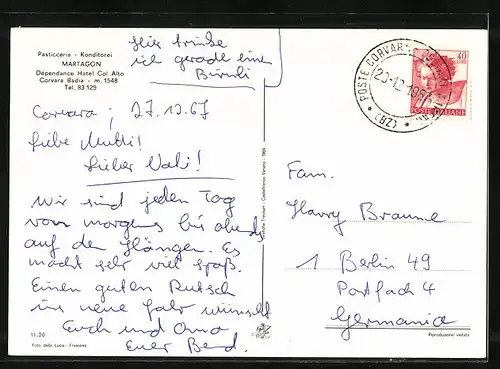 Pasticceria - Konditorei
MARTAGON
Dépendance Hotel Col Alto
Corvara Badia - m. 1548
Tel. 83.129
Hier trinke
ich gerade einen
Corvara, 27.12.67
Liebe Mutti!
Lieber Vati!
Wir sind jeden Tag
von morgens bis abends
auf den Hängen. Es
macht sehr viel Spaß.
Einen guten Rutsch
ins neue Jahr wünscht
Euch und Oma
Euer Bernd.
11.20
Foto della Lucia - Frassené
Fam.
Harry Braune
1 Berlin 49
Postfach 4
Germania
Riproduzione vietata
POSTE CORVARA
(BZ)
40
LIRE
POSTE ITALIANE